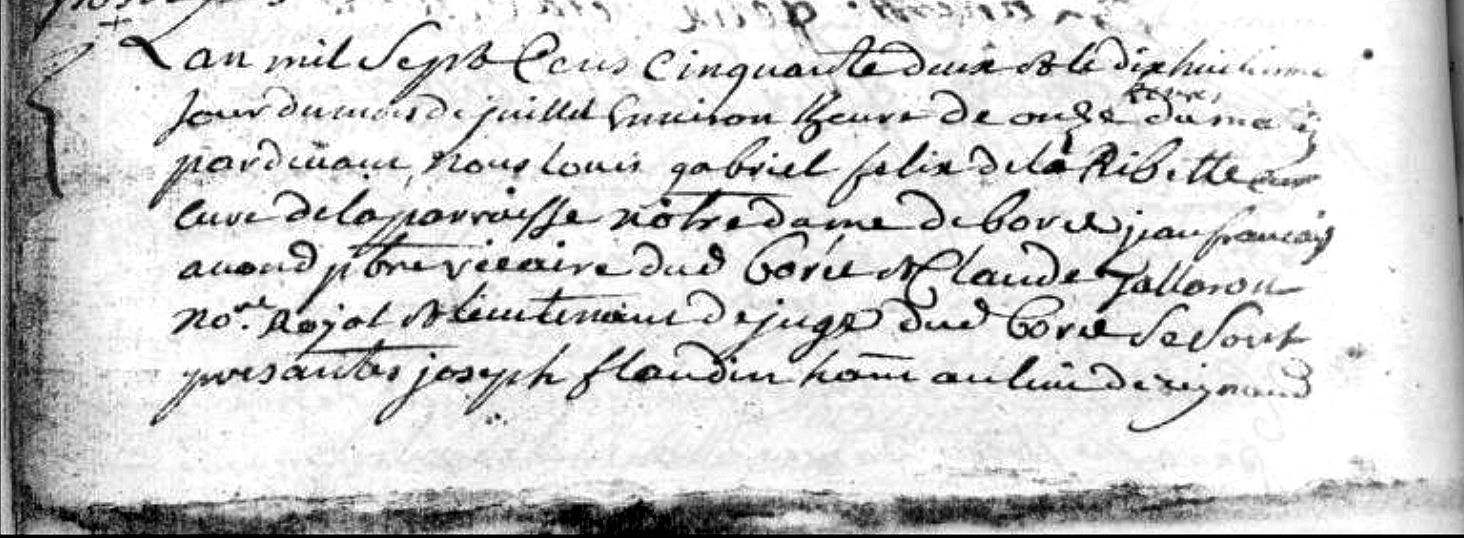 Lan mil sept Cens Cinquante deux et le dixhuitieme
jour du mois de juillet Environ lheure de onze heures du matin
pardevant nous louis gabriel felix de la Ribette
curé de la parroisse notre dame de boreé jean françois
avond ptre viccaire dud boreé et Claude
no.re Royal et lieutenant de juge dud boreé se sont
presantes joseph flandin habitant au lieu de reynaud